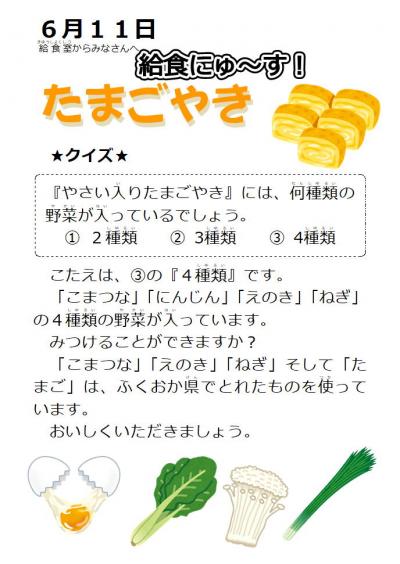 ６月１１日
給食室からみなさんへ
給食にゅ～す！
たまごやき
★クイズ★
『やさい入りたまごやき』には、何種類の
野菜が入っているでしょう。
① ２種類　② 3種類　③ 4種類
こたえは、③の『４種類』です。
「こまつな」「にんじん」「えのき」「ねぎ」
の４種類の野菜が入っています。
みつけることができますか？
「こまつな」「えのき」「ねぎ」そして「た
まご」は、ふくおか県でとれたものを使って
います。
おいしくいただきましょう。